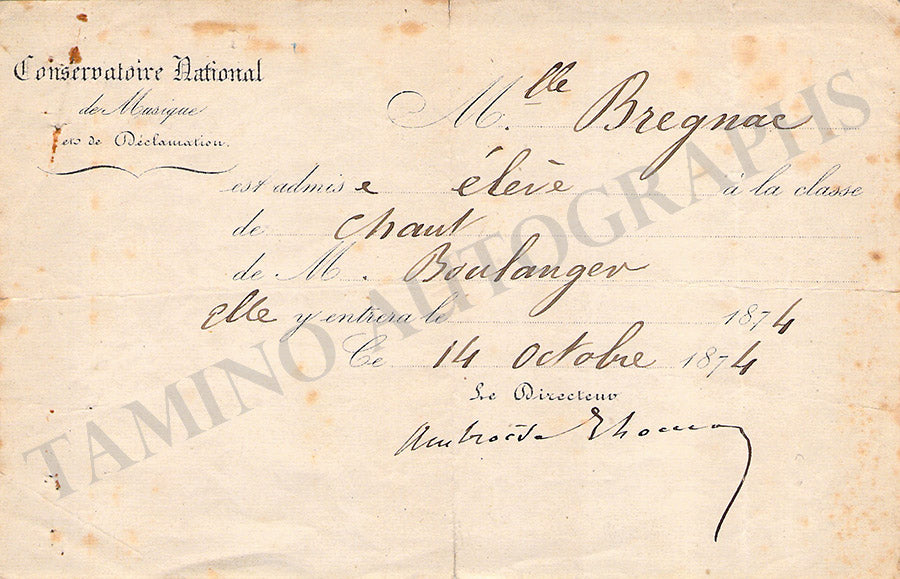 Conservatoire National
de Musique
et de Déclamation.
Mlle Bregnac
est admise élève à la classe
de chant
de M. Boulanger
elle y entrera le 1874
Ce 14 octobre 1874
Le Directeur
Ambroise Thomas
TAMINO AUTOGRAPHS